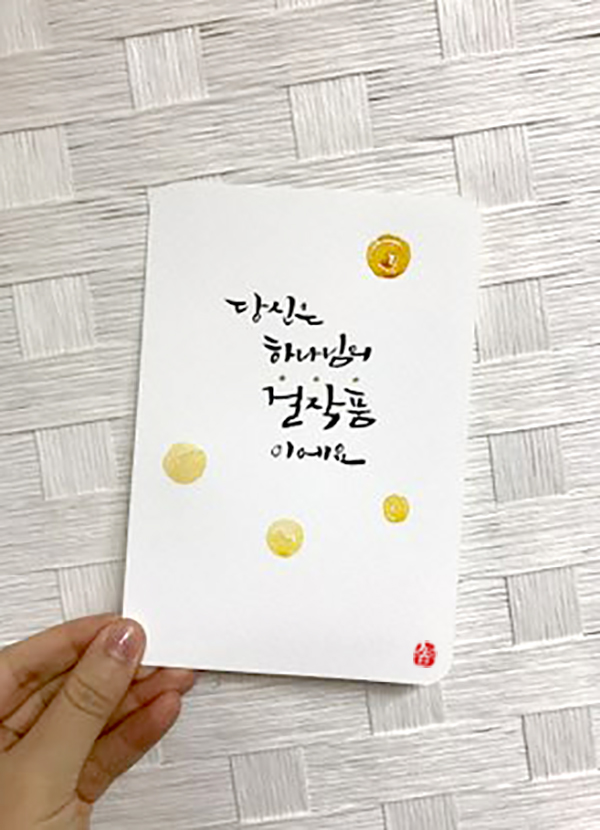 당신은
하나님의
걸작품
이에요